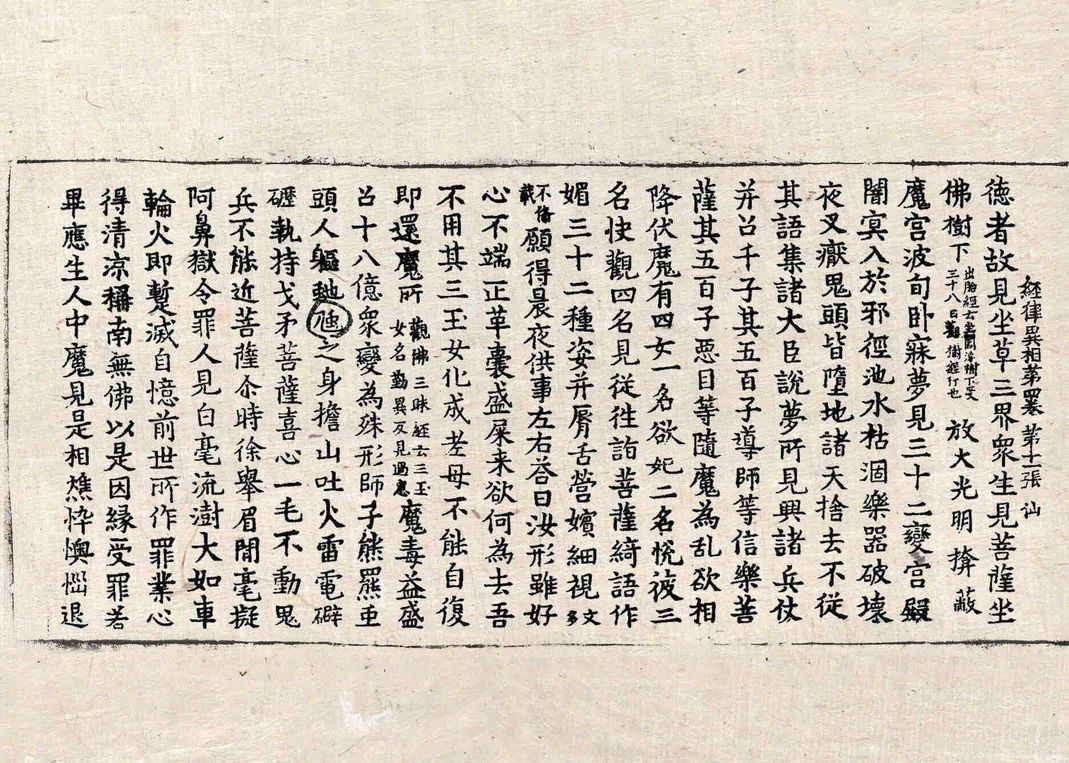 徳者故見坐草三界衆生見菩薩坐
經律異相第四 第十二張 仙
佛樹下
出胎經云坐閻浮樹下
三十八日觀樹經行也
放大光明掩蔽
魔宮波旬卧寐夢見三十二變宮殿
闇冥入於邪徑池水枯涸樂器破壊
夜叉厭鬼頭皆墮地諸天捨去不從
其語集諸大臣說夢所見興諸兵仗
并召千子其五百子導師等信樂菩
薩其五百子惡目等隨魔為乱欲相
降伏魔有四女一名欲妃二名悅彼三
名快觀四名見從徃詣菩薩綺語作
媚三十二種姿并脣舌營嬪細視
文多
不備
載
願得晨夜供事左右荅曰汝形雖好
心不端正革囊盛屎来欲何為去吾
不用其三玉女化成老母不能自復
即還魔所
觀佛三昧經云三玉
女名動異又見過患
魔毒益盛
召十八億衆變為殊形師子熊羆
頭人軀虵虺之身擔山吐火雷電礔
礰執持戈矛菩薩喜心一毛不動鬼
兵不能近菩薩尒時徐舉眉間毫擬
阿鼻獄令罪人見白毫流澍大如車
輪火即蹔滅自憶前世所作罪業心
得清凉稱南無佛以是因緣受罪若
畢應生人中魔見是相憔悴懊惱退